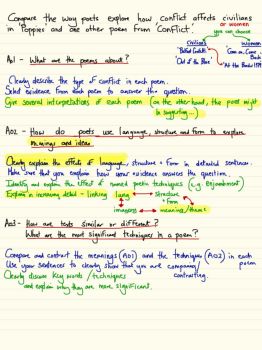 Compare the way poets explore how conflict affects civilians
or women
you can choose
in Poppies and one other poem from 'Conflict.'
Civilians
women
'Belfast Confetti'
'Out of the Blue'
'Come on, Come
Back
'At the Border 1979
Ao1 - What are the poems about?
Clearly describe the type of conflict in each poem.
Select evidence from each poem to answer the question.
Give several interpretations of each poem (on the other hand, the poet might
be suggesting ...)
Ao2 - How do poets use language, structure and form to explore
meanings and ideas.
Clearly explain the effects of language, structure + form in detailed sentences.
Make sure that you explain how your evidence answers the question.
Identify and explain the effect of named poetic techniques (e.g. Enjambment)
Explain in increasing detail - linking lang structure
+ form
imagery meaning/theme
Ao3 - How are texts similar or different?
What are the most significant techniques in a poem?
Compare and contrast the meanings (AO1) and the techniques (AO2) in each
poem
Use your sentences to clearly show that you are comparing/
contrasting.
Clearly discuss key words / techniques
and explain why they are more significant.